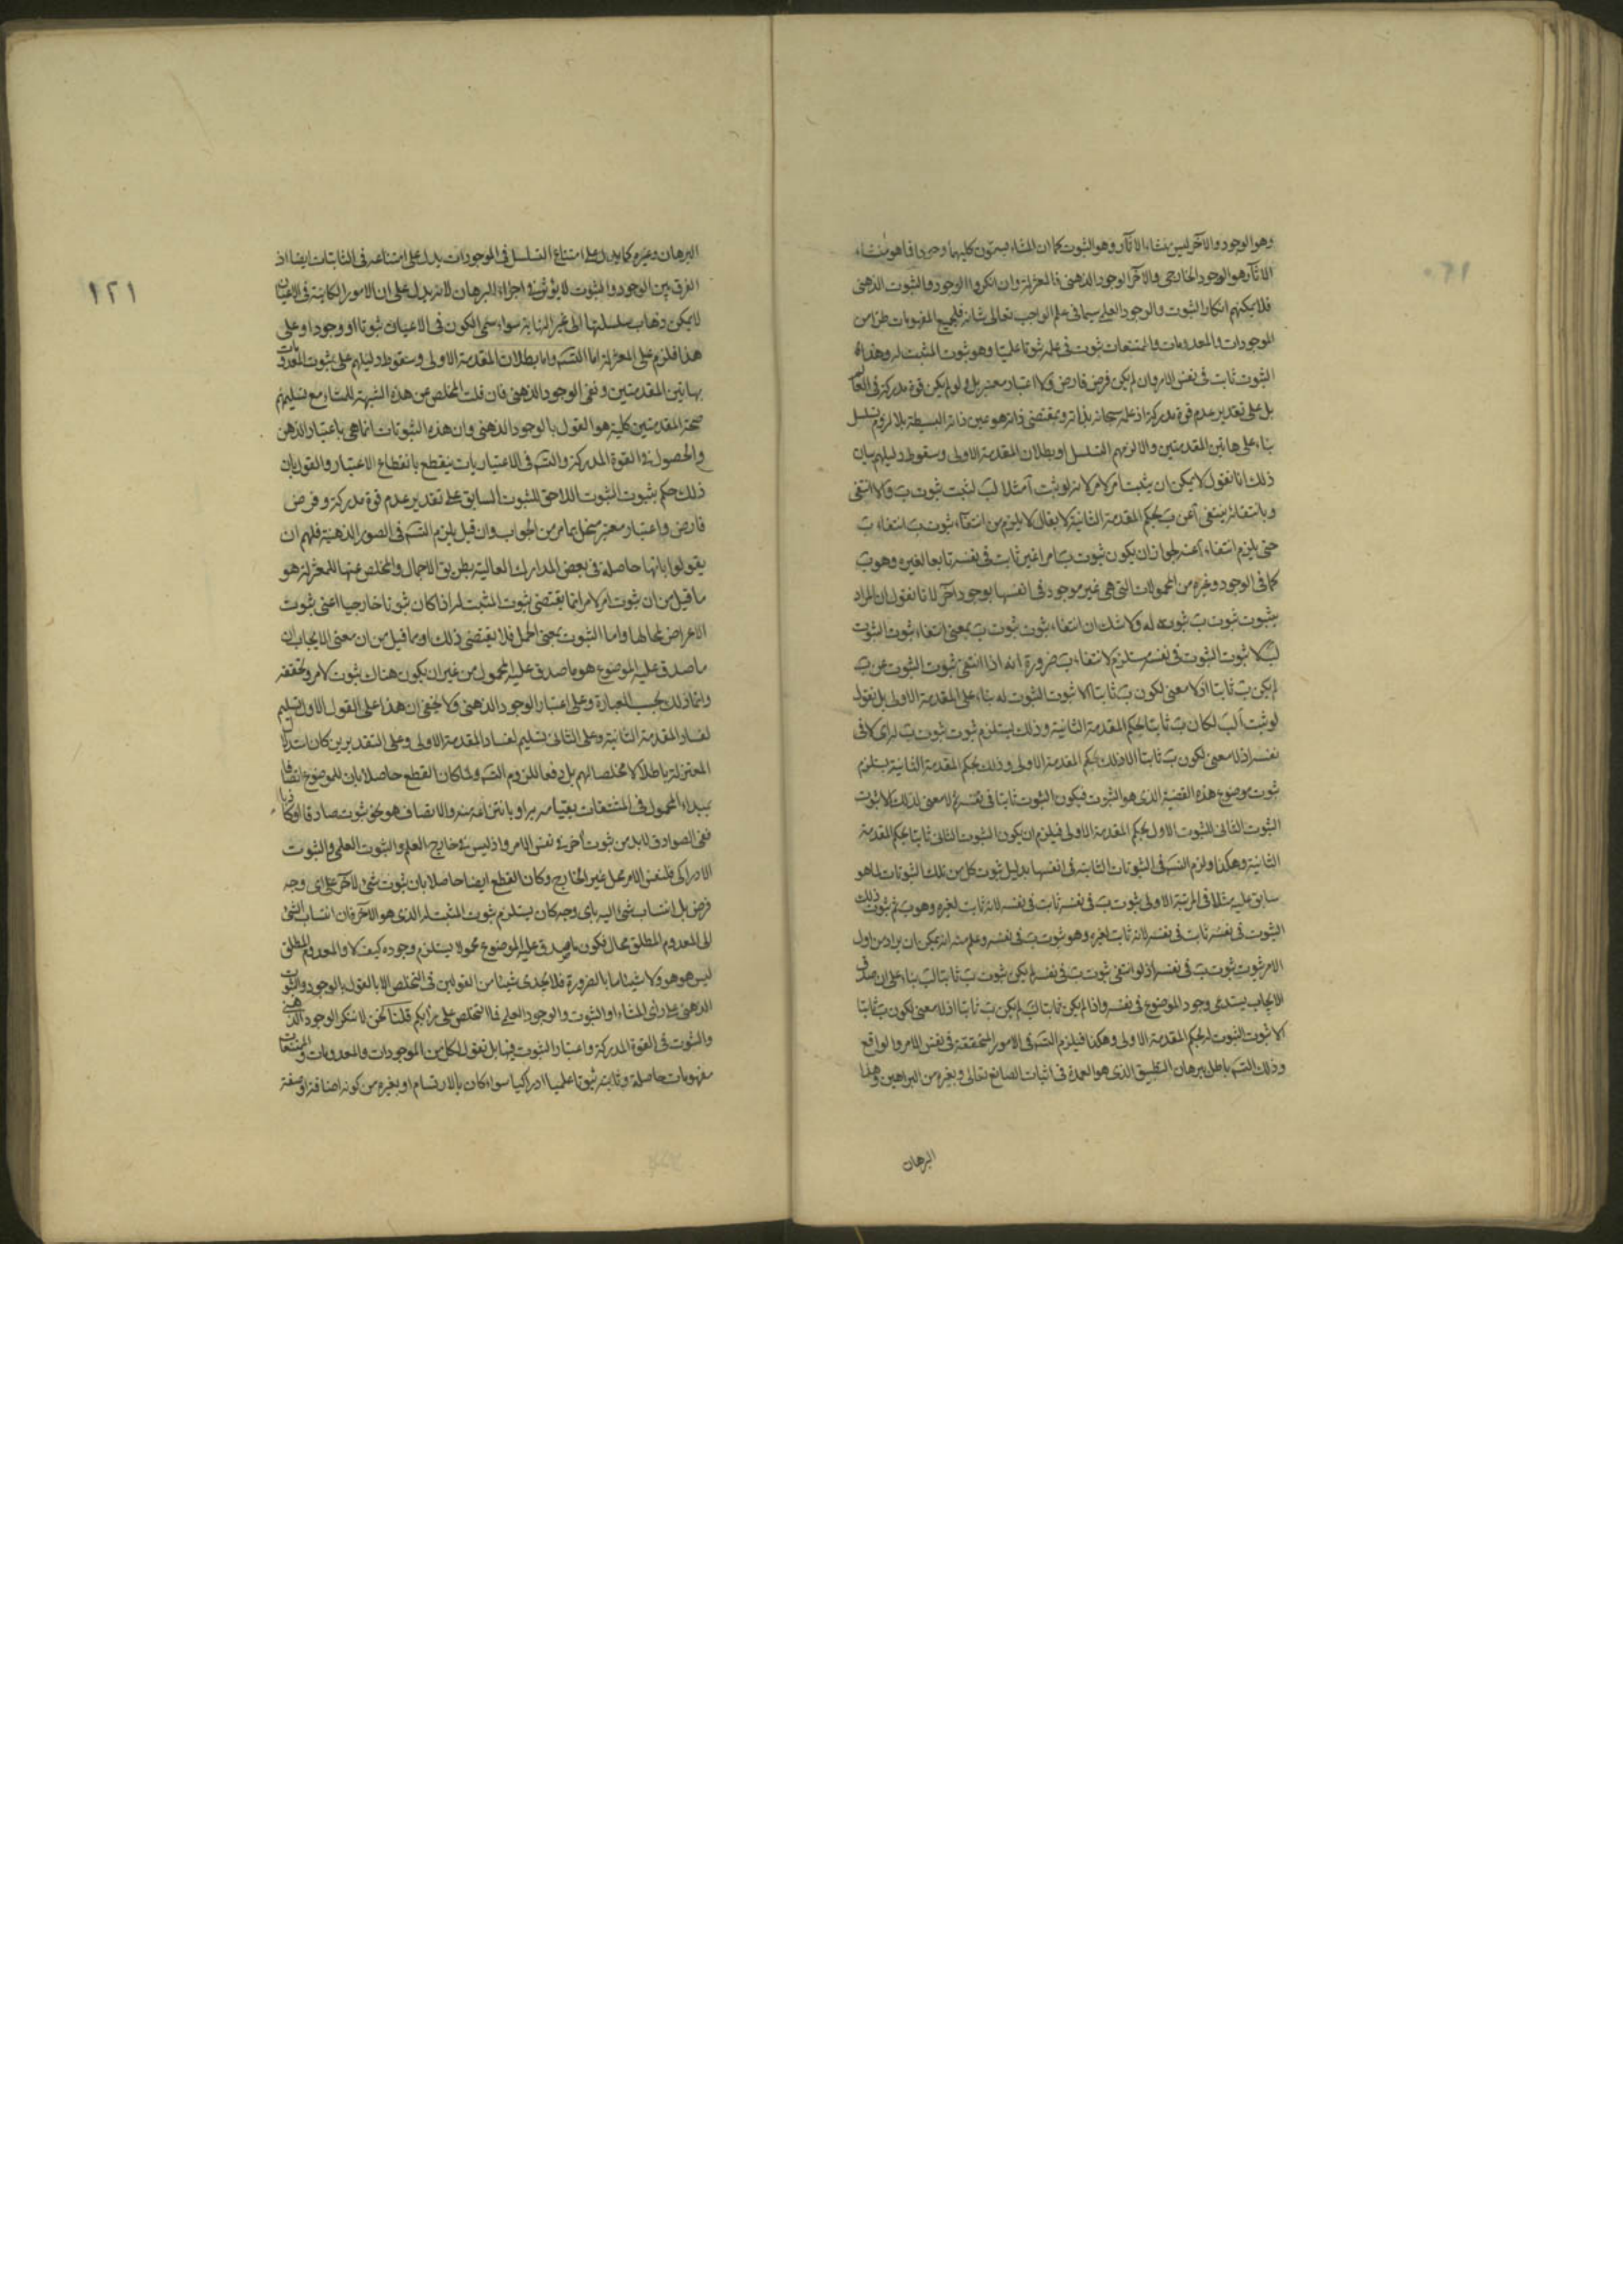 وهو الوجود والآخر ليس منشاء الآثار وهو الثبوت كما ان المشاء يسمون كليهما وجودا فما هو منشاء
الآثار هو الوجود الخارجي والآخر الوجود الذهني فالمعتزلة وان انكروا الوجود والثبوت الذهني
فلا يمكنهم انكار الثبوت والوجود العلمي سيما في علم الواجب تعالى شانه فلجميع المفهومات طرا من
الموجودات والمعدومات والممتنعات ثبوت في علمه ثبوتا علميا وهو ثبوت المثبت له وهذا
الثبوت ثابت في نفس الامر وان لم يكن فرض فارض ولا اعتبار معتبر بل ولو لم يكن قوة مدركة في العالم
بل على تقدير عدم قوة مدركة اذ علمه سبحانه بذاته وبمقتضى ذاته هو عين ذاته البسيطة بلا لزوم تسلسل
بناء على هاتين المقدمتين والا لزمهم التسلسل او بطلان المقدمة الاولى وسقوط دليلهم بيان
ذلك انا نقول لا يمكن ان يثبت امر لامر لانه لو ثبت آ مثلا لب لثبت ثبوت ب والا انتفى
وبانتفائه ينتفي آ عن ب بحكم المقدمة الثانية لا يقال لا يلزم من انتفاء ثبوت ب انتفاء ب
حتى يلزم انتفاء آ عنه لجواز ان يكون ثبوت ب امرا غير ثابت في نفسه تابعا لغيره وهو ب
كما في الوجود وغيره من المحمولات التي هي غير موجود في انفسها بوجود آخر لانا نقول ان المراد
بثبوت ثبوت ب ثبوته له ولا شك ان انتفاء ثبوت ثبوت ب بمعنى انتفاء ثبوت الثبوت
لب لا ثبوت الثبوت في نفسه مستلزم لانتفاء ب ضرورة انه اذا انتفى ثبوت الثبوت عن ب
لم يكن ب ثابتا اذ لا معنى لكون ب ثابتا الا ثبوت الثبوت له بناء على المقدمة الاولى بل نقول
لو ثبت آ لب لكان ب ثابتا بحكم المقدمة الثانية وذلك يستلزم ثبوت ثبوت ب له اي لا في
نفسه اذ لا معنى لكون ب ثابتا الا ذلك بحكم المقدمة الاولى وذلك بحكم المقدمة الثانية يستلزم
ثبوت موضوع هذه القضية الذي هو الثبوت فيكون الثبوت ثابتا في نفسه ولا معنى لذلك الا ثبوت
الثبوت الثاني للثبوت الاول بحكم المقدمة الاولى فيلزم ان يكون الثبوت الثاني ثابتا بحكم المقدمة
الثانية وهكذا ولزم التسـ في الثبوتات الثابتة في انفسها بدليل ثبوت كل من تلك الثبوتات لما هو
سابق عليه مثلا في المرتبة الاولى ثبوت ب في نفسه ثابت في نفسه لانه ثابت لغيره وهو ب ثم ثبوت ذلك
الثبوت في نفسه ثابت في نفسه لانه ثابت لغيره وهو ثبوت ب في نفسه وعلم منه انه يمكن ان يراد من اول
الامر ثبوت ثبوت ب في نفسه اذ لو انتفى ثبوت ب في نفسه لم يكن ثبوت ب ثابتا لب بناء على ان صدق
الايجاب يستدعي وجود الموضوع في نفسه واذا لم يكن ثابتا لب لم يكن ب ثابتا اذ لا معنى لكون ب ثابتا
الا ثبوت الثبوت له بحكم المقدمة الاولى وهكذا فيلزم التسـ في الامور المتحققة في نفس الامر والواقع
وذلك التسـ باطل ببرهان التطبيق الذي هو العمدة في اثبات الصانع تعالى وبغيره من البراهين وهذا
البرهان
١٢١
البرهان وغيره كما يدل على امتناع التسلسل في الموجودات يدل على امتناعه في الثابتات ايضا اذ
الفرق بين الوجود والثبوت لا يؤثر في اجراء البرهان لانه يدل على ان الامور الكاينة في الاعيان
لا يمكن ذهاب سلسلتها الى غير النهاية سواء سمي الكون في الاعيان ثبوتا او وجودا وعلى
هذا فلزم على المعتزلة اما التسـ واما بطلان المقدمة الاولى وسقوط دليلهم على ثبوت المعدومات
بهاتين المقدمتين ونفي الوجود الذهني فان قلت المخلص من هذه الشبهة للمشاء مع تسليمهم
صحة المقدمتين كلية هو القول بالوجود الذهني وان هذه الثبوتات انما هي باعتبار الذهن
والحصول في القوة المدركة والتسـ في الاعتباريات ينقطع بانقطاع الاعتبار والقول بان
ذلك حكم بثبوت الثبوت اللاحق للثبوت السابق على تقدير عدم قوة مدركة وفرض
فارض واعتبار معتبر منحل بما مر من الجواب وان قيل يلزم التسـ في الصور الذهنية فلهم ان
يقولوا بانها حاصلة في بعض المدارك العالية بطريق الاجمال والمخلص عنها للمعتزلة هو
ما قيل من ان ثبوت امر لامر انما يقتضي ثبوت المثبت له اذا كان ثبوتا خارجيا اعني ثبوت
الاعراض لمحالها واما الثبوت بمعنى الحمل فلا يقتضي ذلك او ما قيل من ان معنى الايجاب ان
ما صدق عليه الموضوع هو ما صدق عليه المحمول من غير ان يكون هناك ثبوت لامر وتحققه
وانما ذلك بحسب العبارة وعلى اعتبار الوجود الذهني ولا يخفى ان هذا على القول الاول تسليم
لفساد المقدمة الثانية وعلى الثاني تسليم لفساد المقدمة الاولى وعلى التقديرين كان استدلال
المعتزلة باطلا لا مخلصا لهم بل دفعا للزوم التسـ ولما كان القطع حاصلا بان للموضوع اتصافا
بمبداء المحمول في المشتقات بقيامه به او بانتزاعه منه والاتصاف هو نحو ثبوت صادقا او كاذبا
ففي الصوادق لابد من ثبوت آخر في نفس الامر واذ ليس في خارج العلم والثبوت العلمي والثبوت
الادراكي فلنفس الامر محل غير الخارج وكان القطع ايضا حاصلا بان ثبوت شئ لآخر على اي وجه
فرض بل انتساب شئ اليه باي وجه كان يستلزم ثبوت المثبت له الذي هو الآخر فان انتساب الشئ
الى المعدوم المطلق محال فكون ما يصدق عليه الموضوع محمولا يستلزم وجوده كيف لا والمعدوم المطلق
ليس هو هو ولا شيئا ما بالضرورة فلا يجدي شيئا من القولين في التخلص الا بالقول بالوجود والثبوت
الذهني على راي المشاء او الثبوت والوجود العلمي فما التخلص على رأيكم قلنا نحن لا ننكر الوجود الذهني
والثبوت في القوة المدركة واعتبار الثبوت فيها بل نقول لكل من الموجودات والمعدومات والممتنعات
مفهومات حاصلة وثابتة ثبوتا علميا ادراكيا سواء كان بالارتسام او بغيره من كونه اضافة او صفة